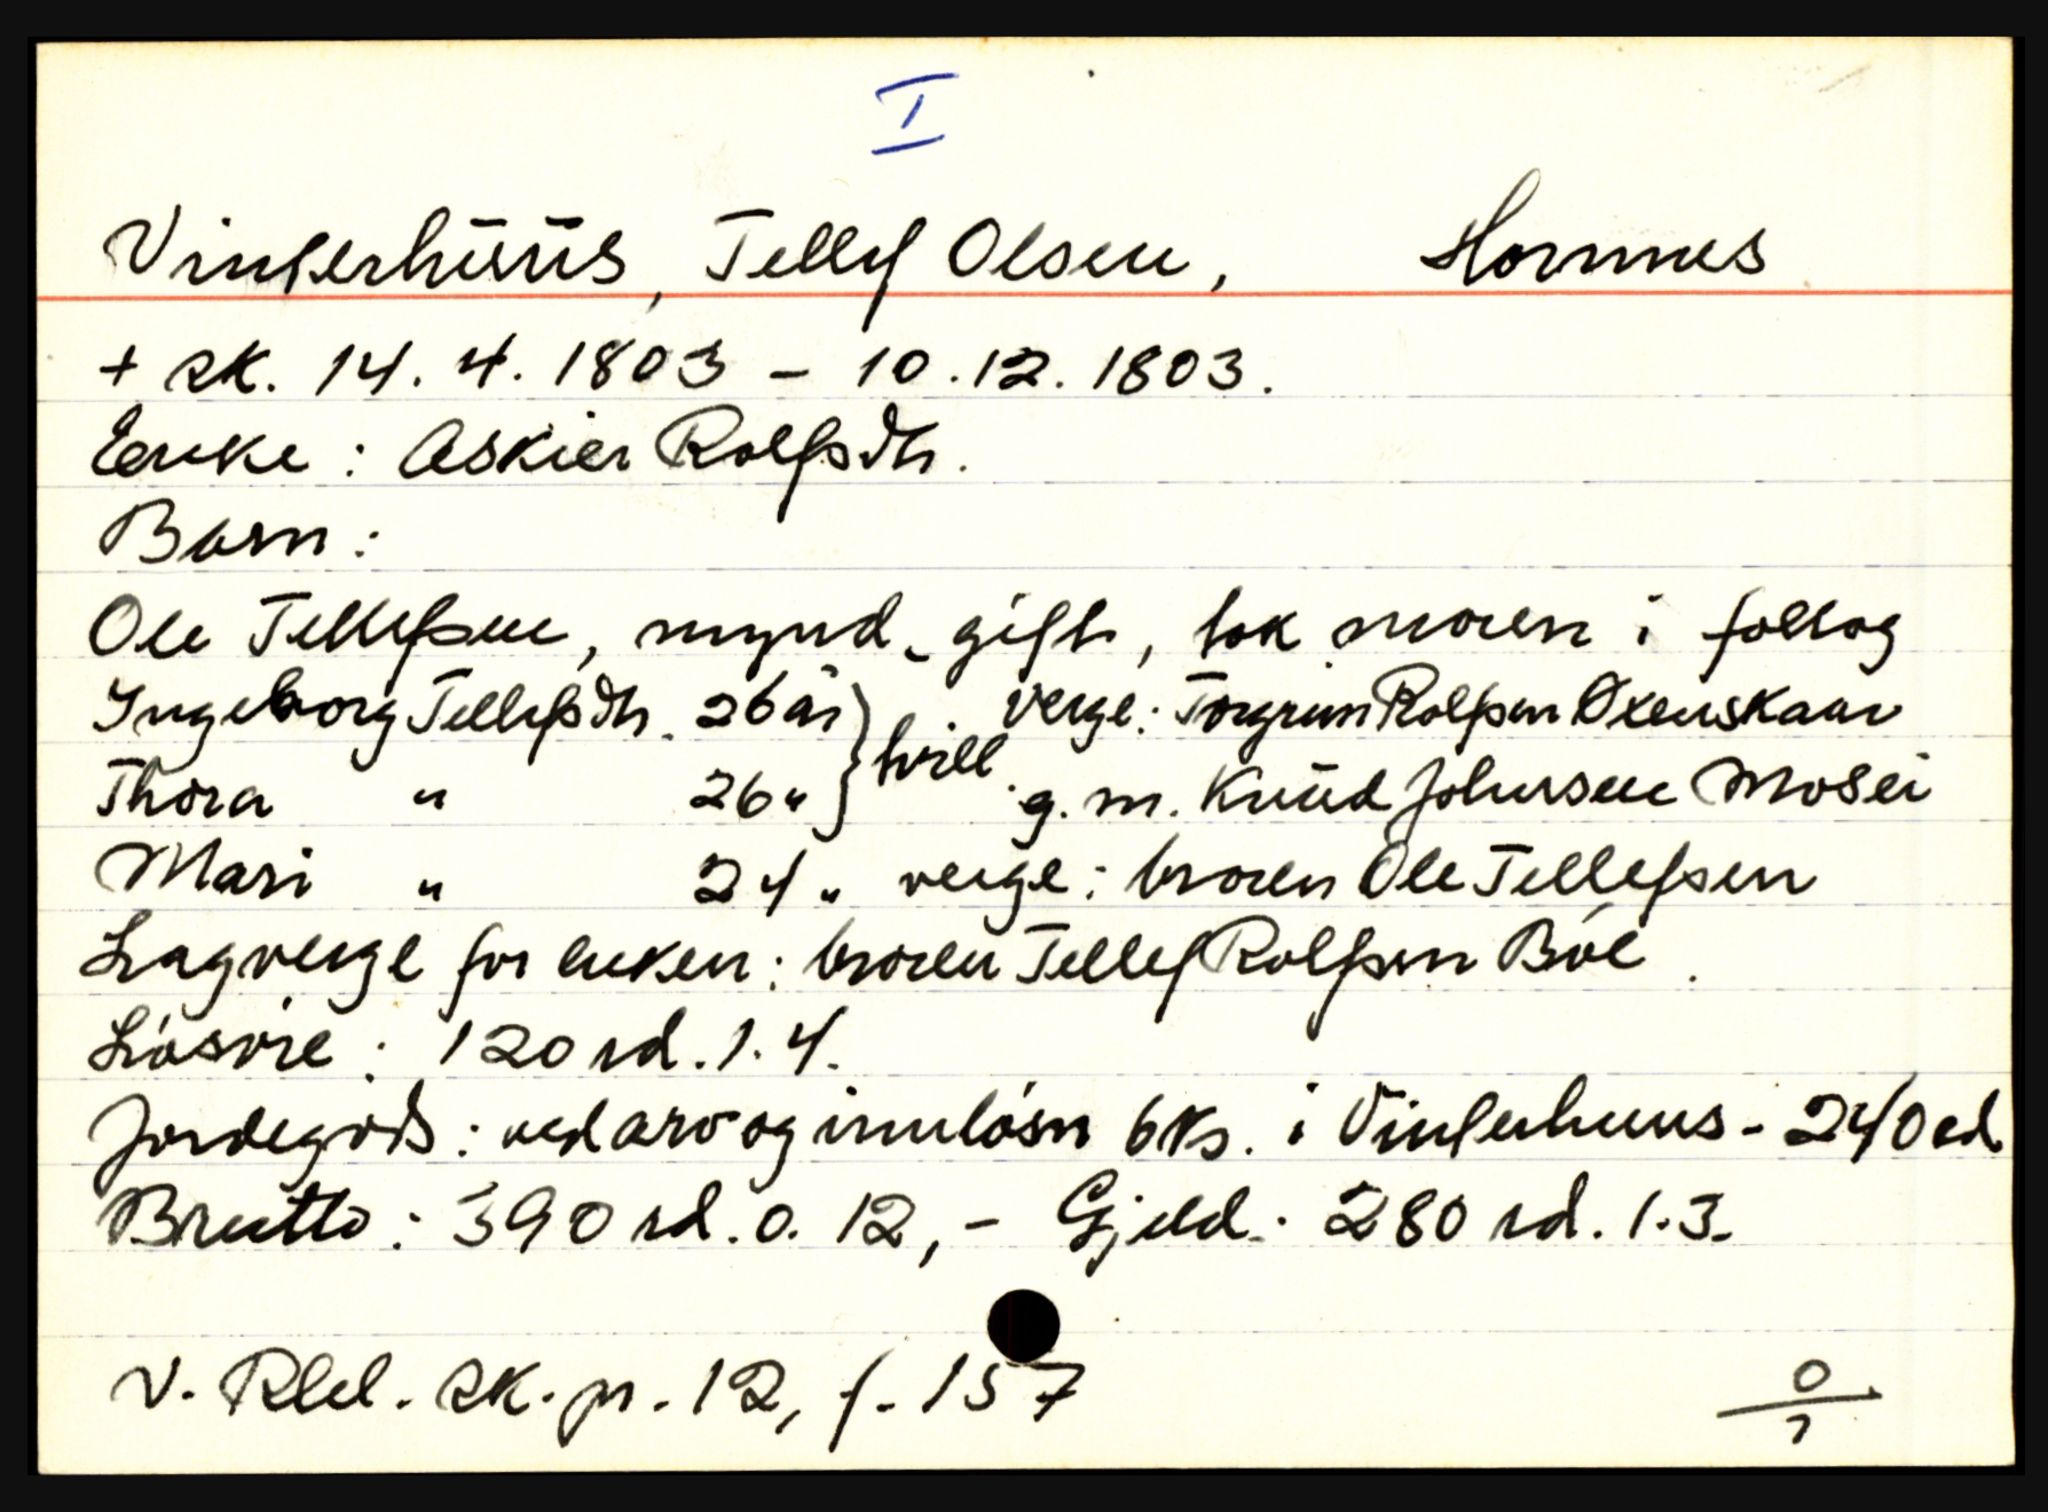 I
Vinterhüüs, Tellef Olsen, Hornnes
+ sk. 14.4.1803 - 10.12.1803.
Enke: Askier Rolfsdtr.
Barn:
Ole Tellefsen, mynd. gift, tok moren i follog
Ingeborg Tellefsdtr. 26 år } tvill. verge: Torgrim Rolfsen Oxenskaar
Thora " 26 " } g. m. Knüd Johnsen Mosei
Mari " 24 " verge: broren Ole Tellefsen
Lagverge for enken: broren Tellef Rolfsen Bóe.
Lósøre: 120 rd. 1. 4.
Jordegods: ved arv og innlósn 6 ks. i Vinterhuus - 240 rd.
Brutto: 390 rd. 0. 12, - Gjeld: 280 rd. 1.3.
V. Rbl. sk. pr. 12, f. 157
0/1